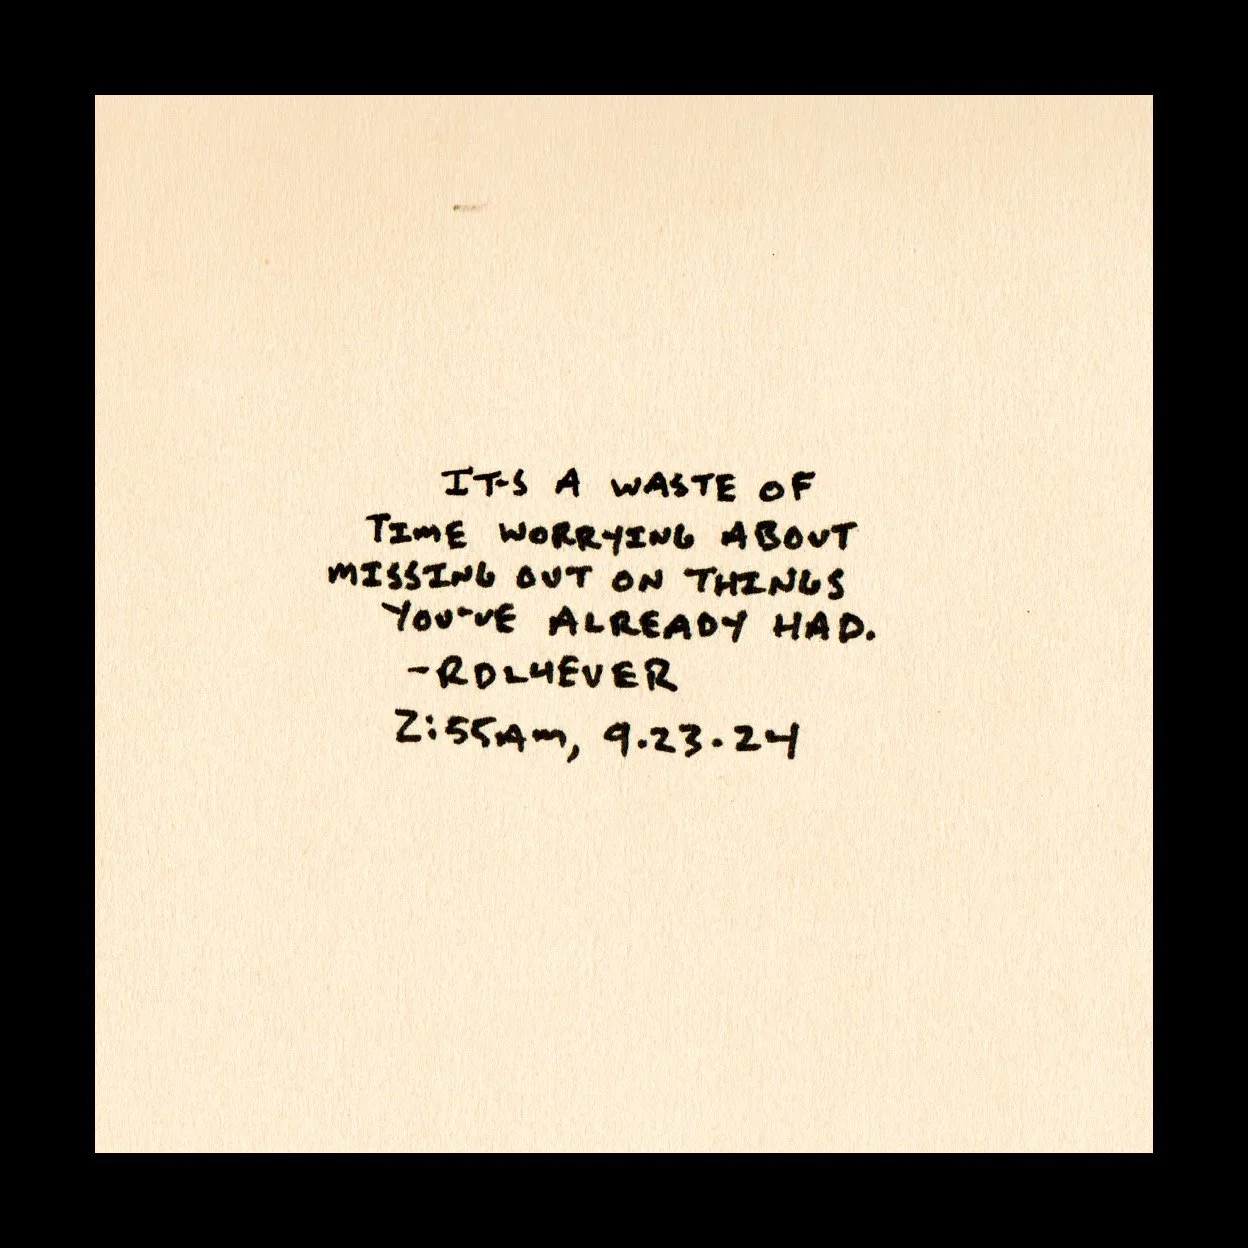 IT'S A WASTE OF
TIME WORRYING ABOUT
MISSING OUT ON THINGS
YOU'VE ALREADY HAD.
-RDL4EVER
2:55AM, 9.23.24